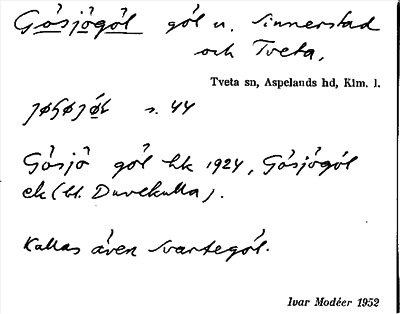 Gȯ́sjögȯ́l gȯ́l n. Sinnerstad
och Tveta,
Tveta sn, Aspelands hd, Klm. l.
s. 44
Gȯ́sjö gȯ́l hk 1924, Gȯ́sjögȯ́l
ek (bl. Duvekulla).
Kallas även Svartegȯ́l.
Ivar Modéer 1952